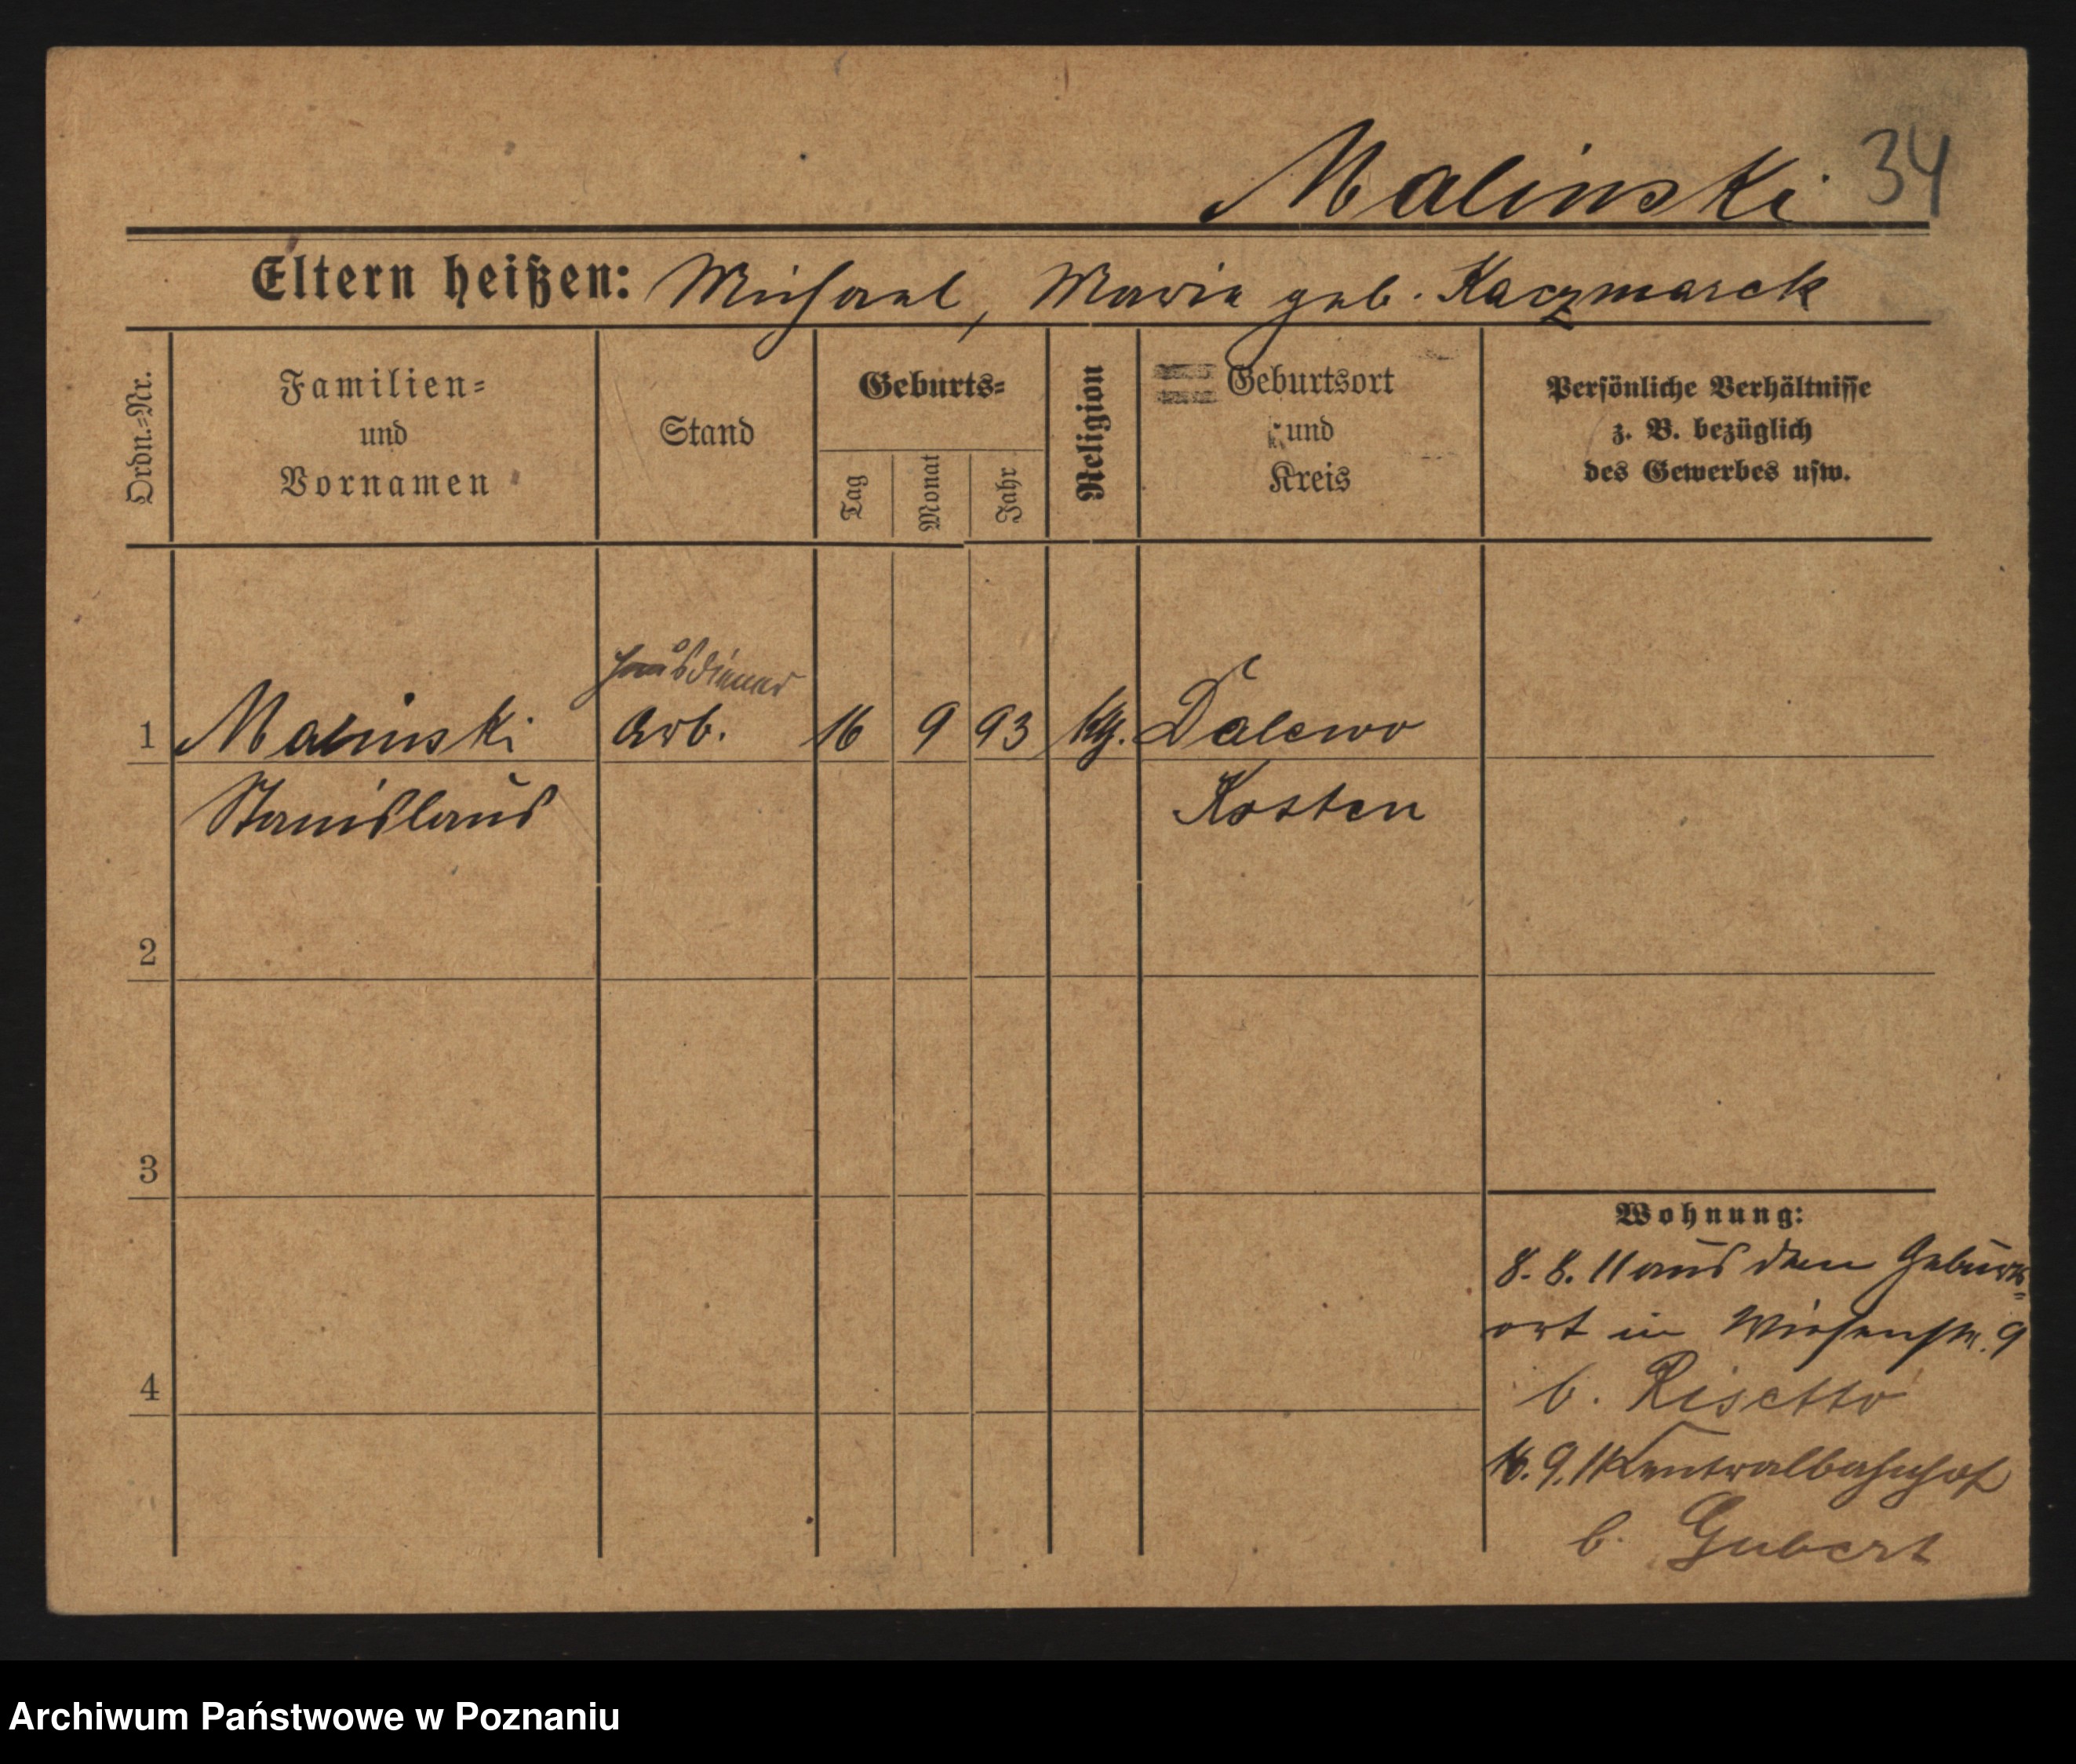 Malinski 34
Eltern heißen: Michael, Maria geb. Kaczmarek
Ordn.=Nr.
Familien=
und
Vornamen
Stand
Geburts=
Tag
Monat
Jahr
Religion
Geburtsort
und
Kreis
Persönliche Verhältnisse
z. B. bezüglich
des Gewerbes usw.
Hausdiener
1 Malinski Arb. 16 9 93 kg. Dalewo
Stanislaus Kosten
2
3
4
Wohnung:
8. 8. 11 aus dem Geburts=
ort in Wiesenstr. 9
b. Risetto
16. 9. 11 Zentralbahnhof
b. Gubert
Archiwum Państwowe w Poznaniu